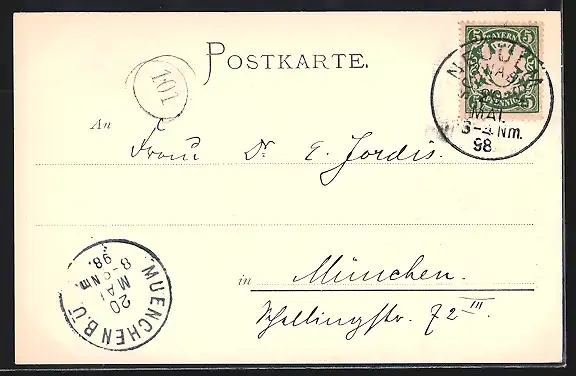 POSTKARTE.
BAYERN
5 5
PFENNIG
MAI.
3-4 Nm.
98
101
An Frau Dr. E. Jordis.
in München.
Schellingstr. 72 III.
MUENCHEN B.Ü.
20
MAI
8-9 Nm.
98.